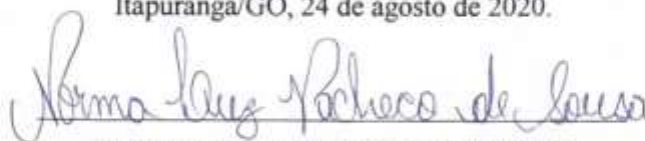 Itapuranga/GO, 24 de agosto de 2020.
Norma Luz Pacheco de Sousa